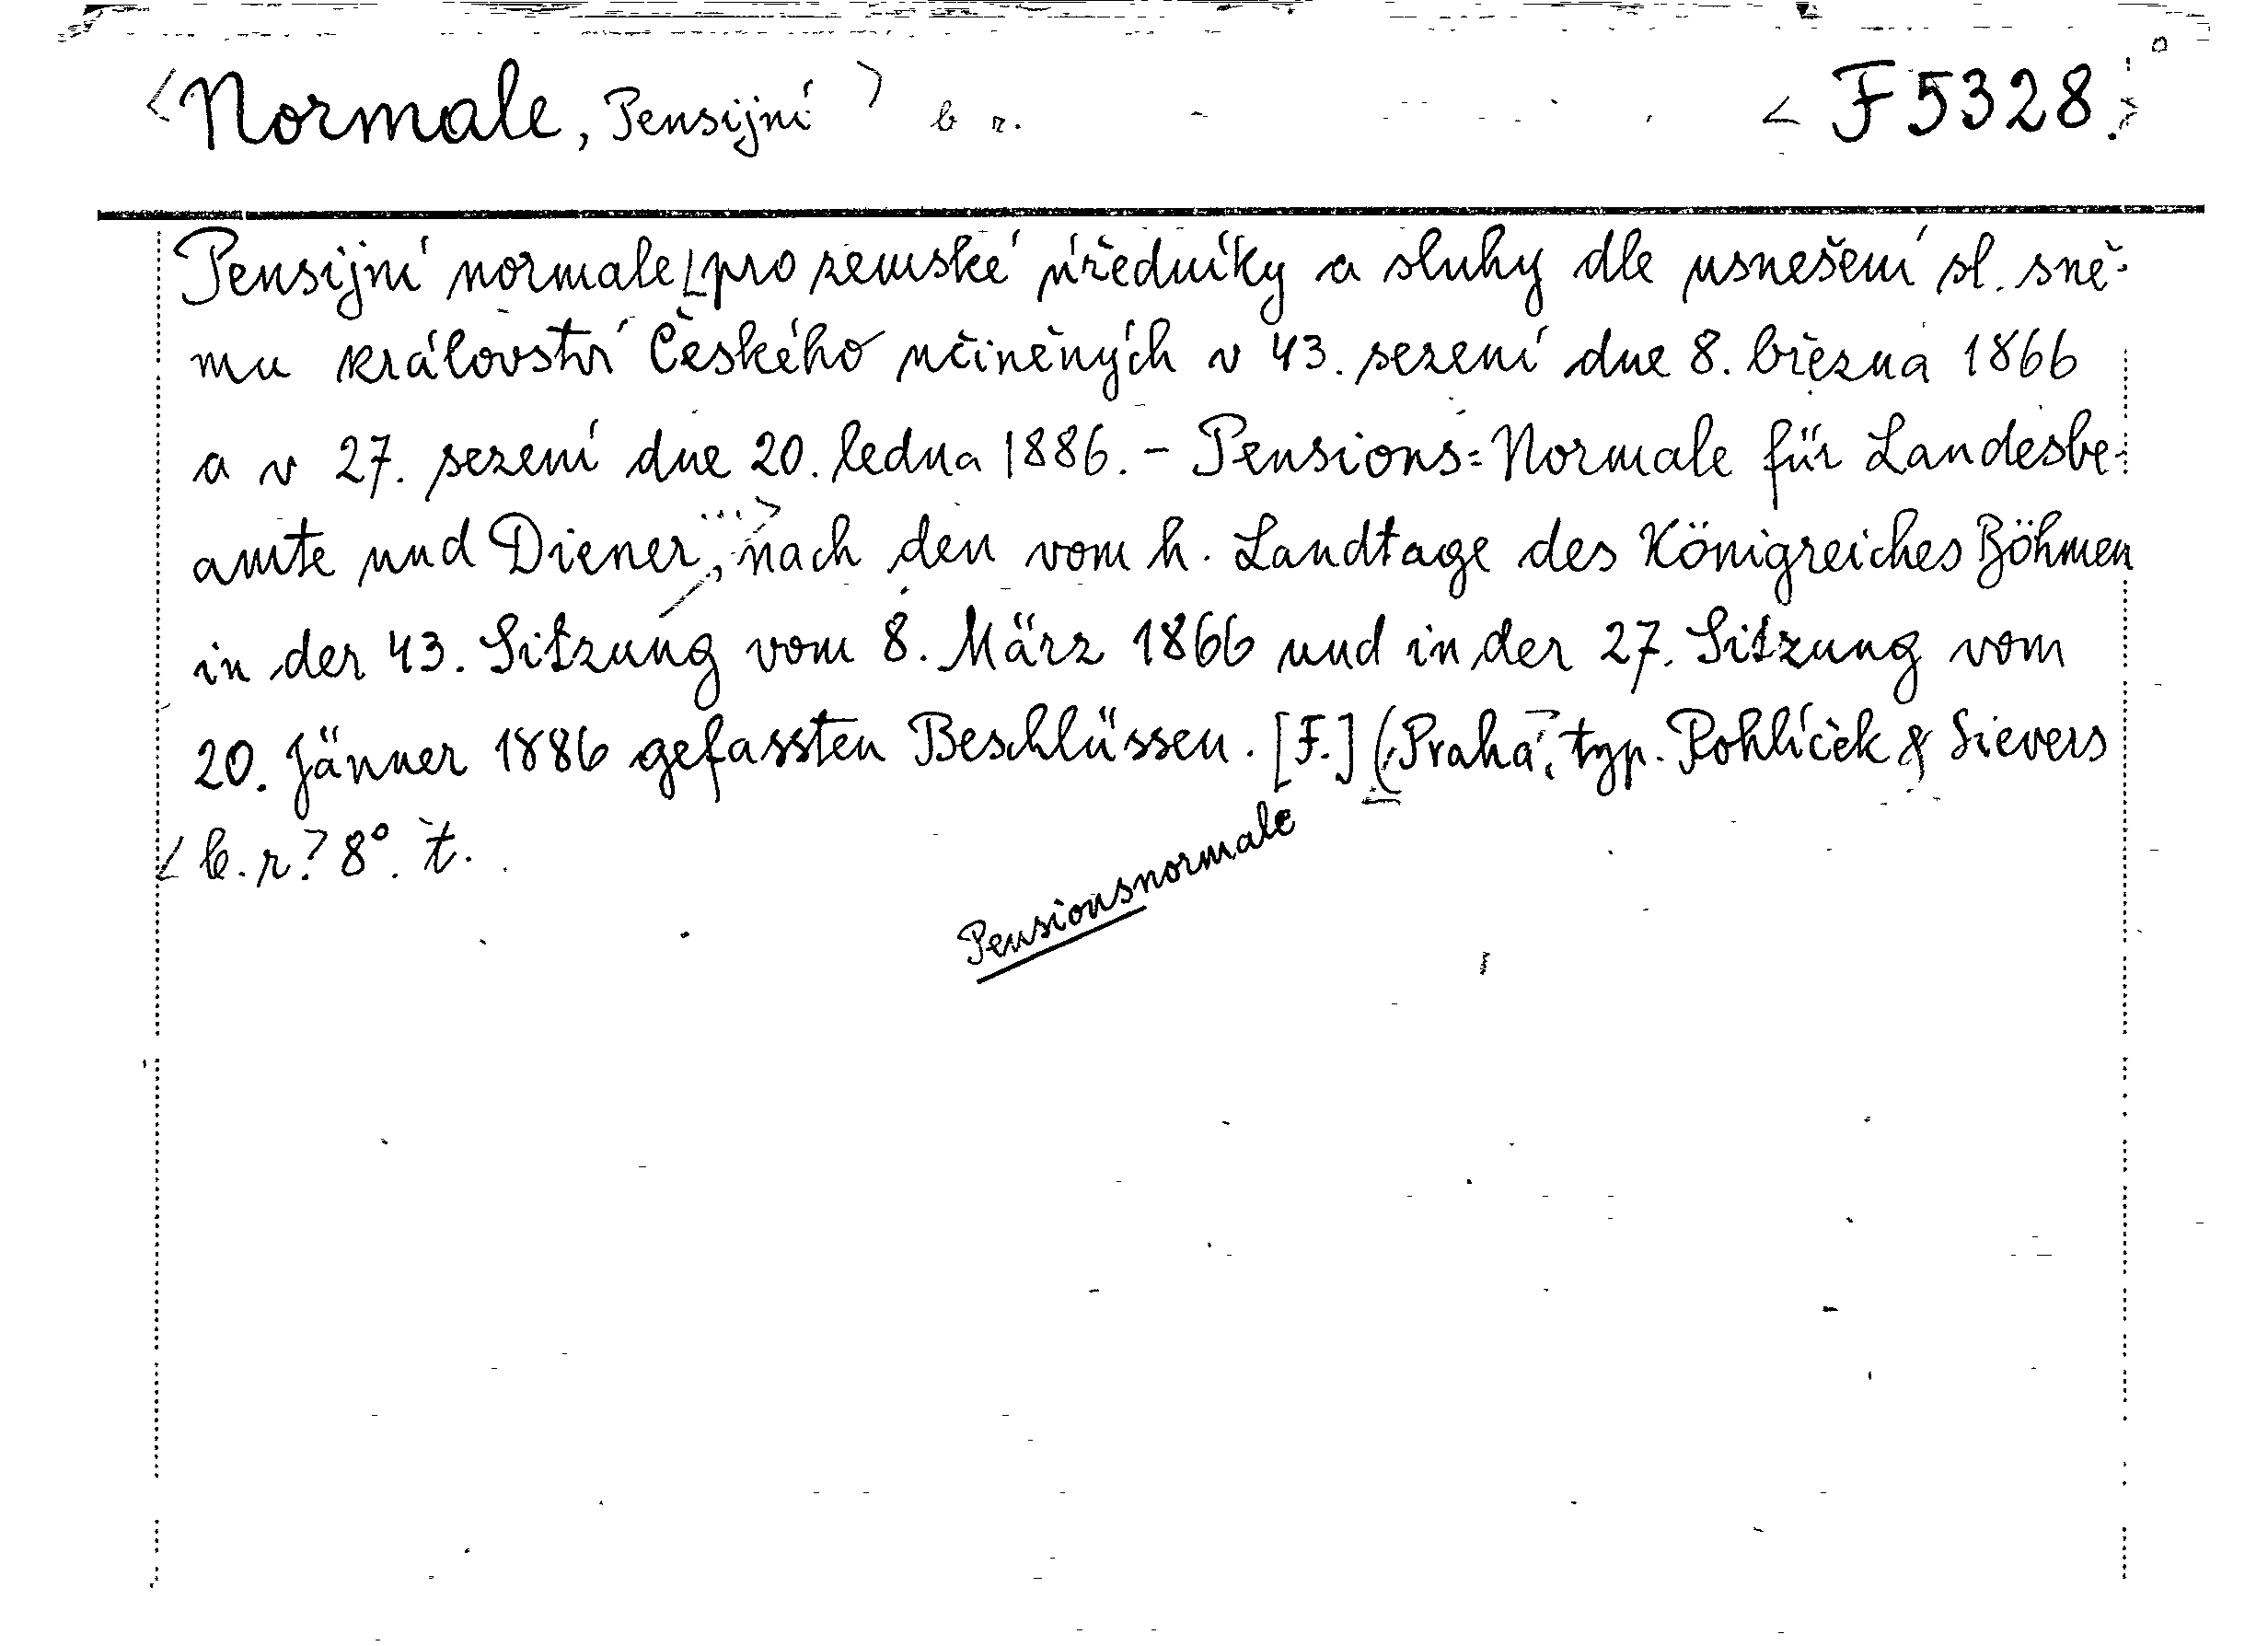 <Normale, Pensijní> b r. <F 5328.>
Pensijní normale [pro zemské úředníky a sluhy dle usnešení sl. sně-
mu království Českého učiněných v 43. sezení dne 8. března 1866
a v 27. sezení dne 20. ledna 1886. - Pensions=Normale für Landesbe-
amte und Diener, ...> nach den vom h. Landtage des Königreiches Böhmen
in der 43. Sitzung vom 8. März 1866 und in der 27. Sitzung vom
20. Jänner 1886 gefassten Beschlüssen. [F.] (Praha, typ. Pohlíček & Sievers
<b. r.> 8°. t.
Pensionsnormale